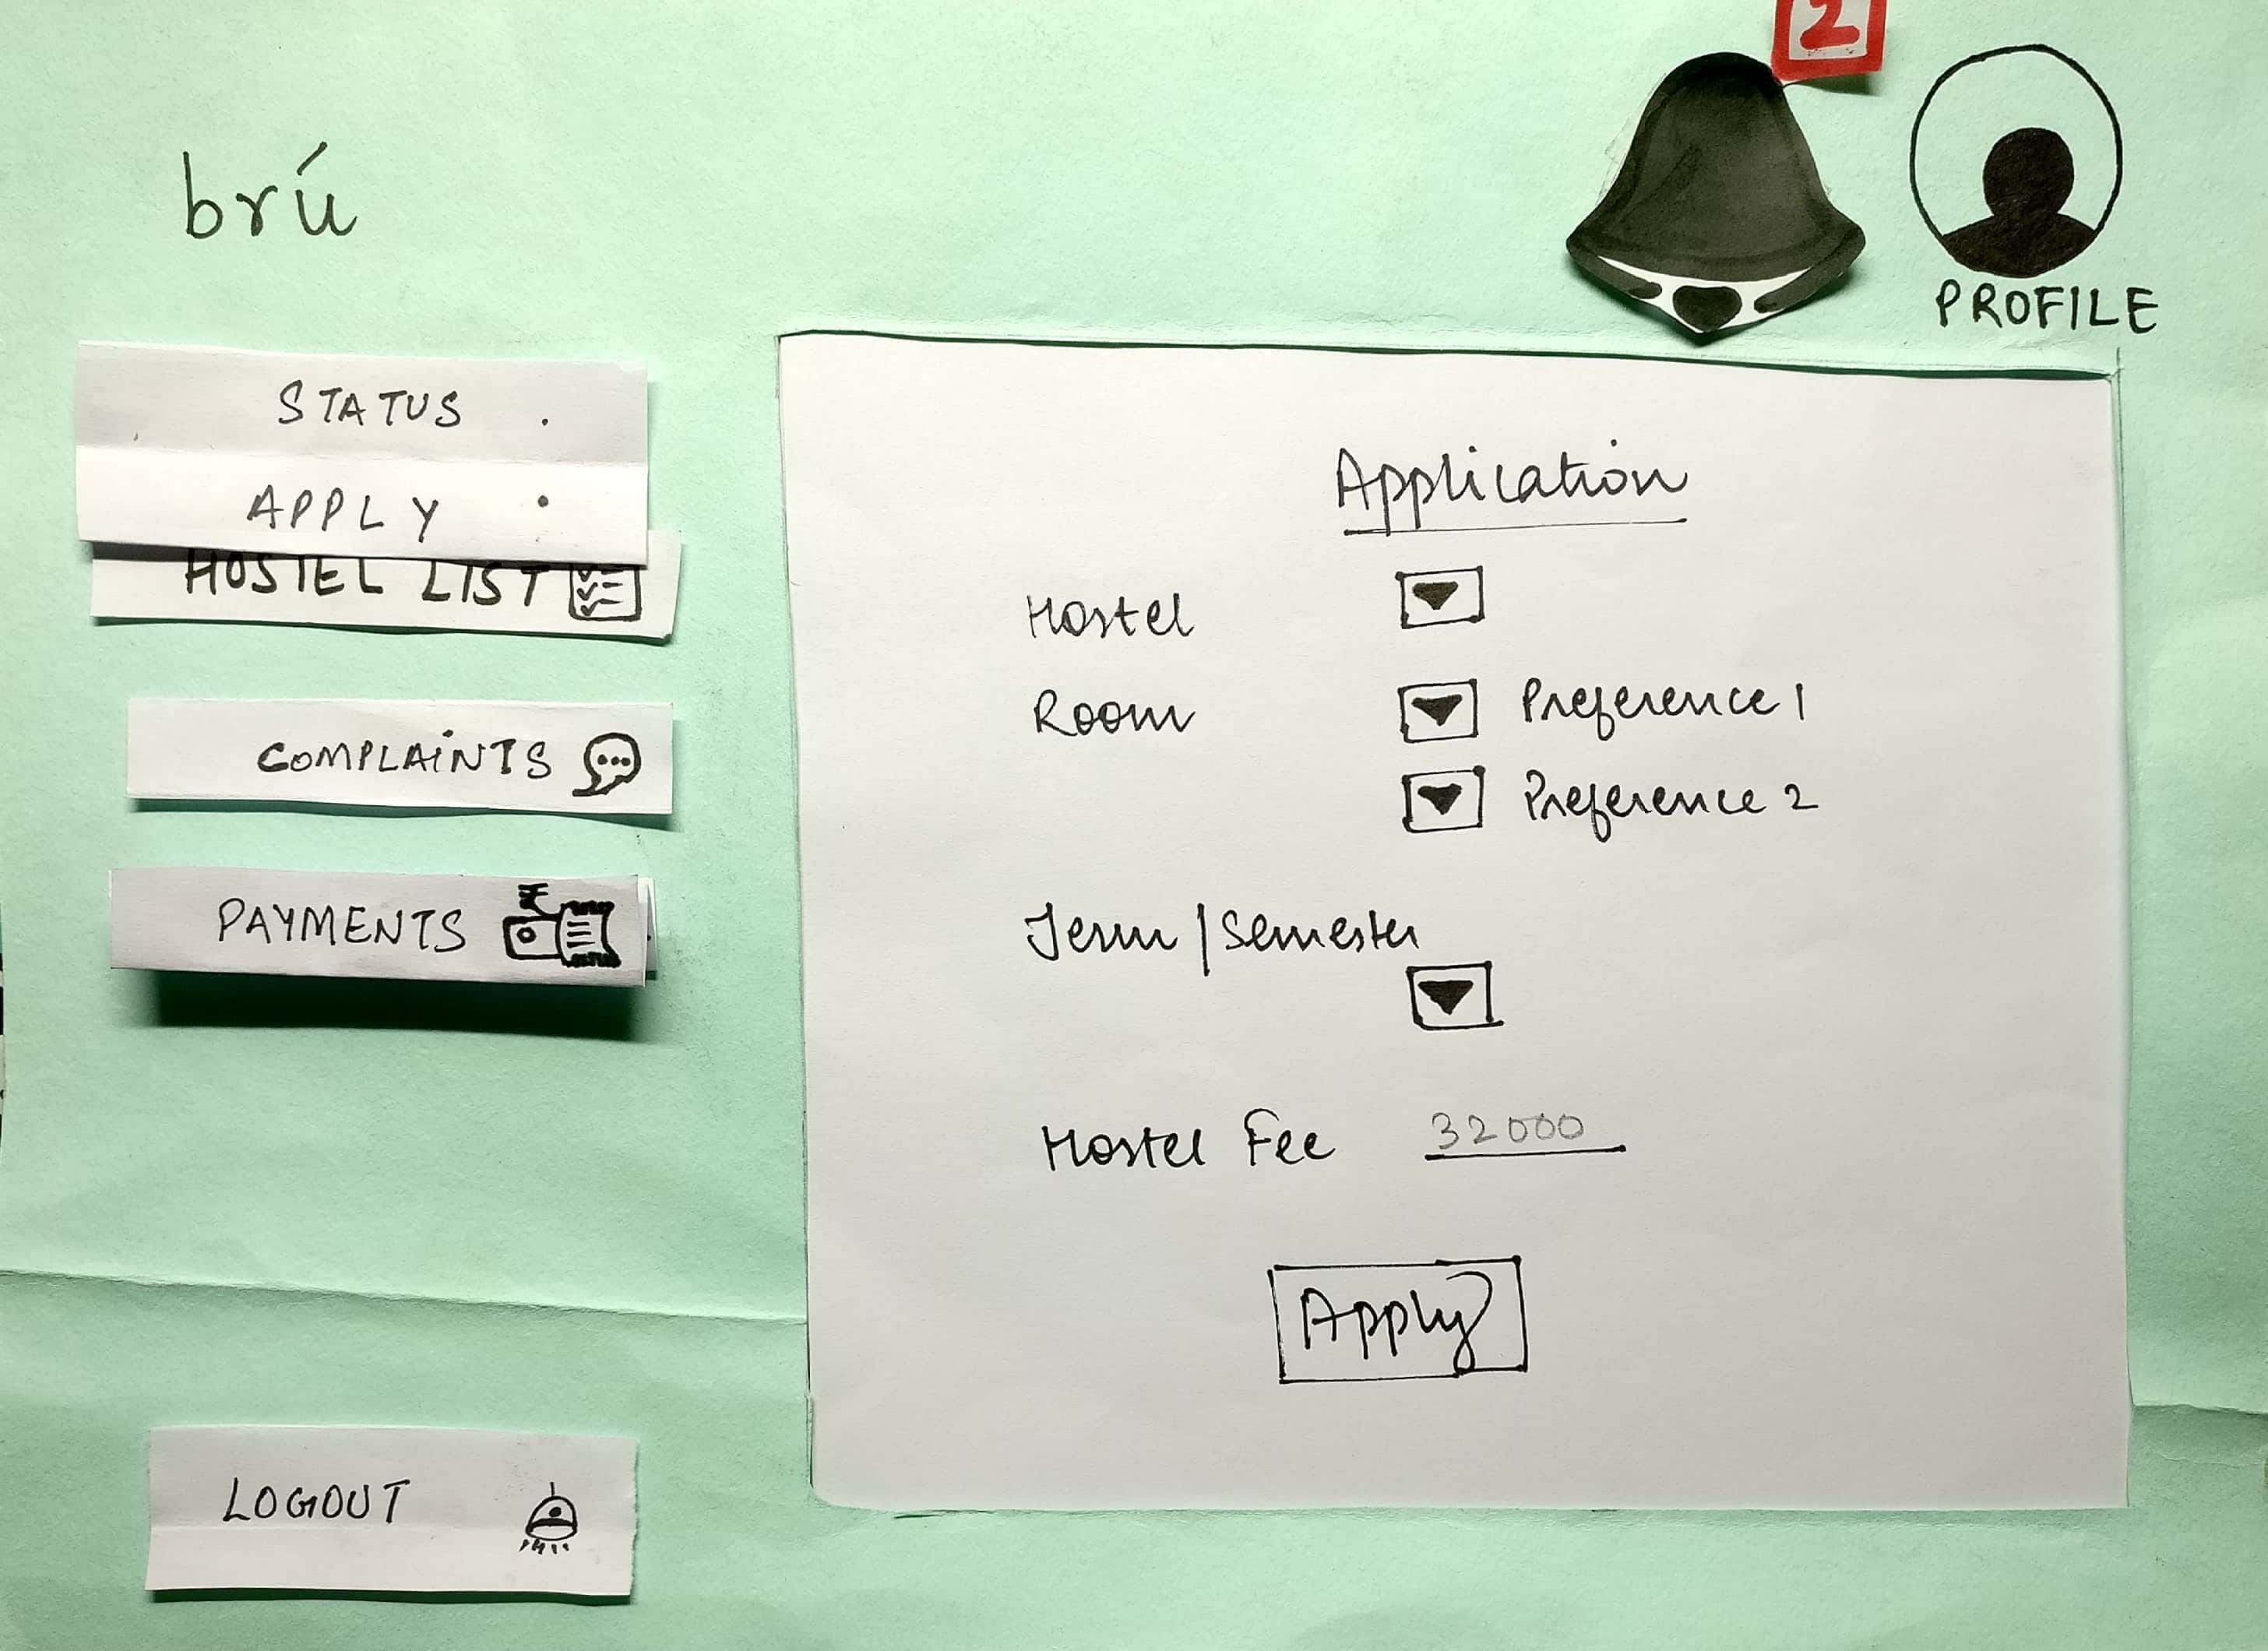 2
brú
PROFILE
STATUS
APPLY
HOSTEL LIST
COMPLAINTS
PAYMENTS ₹
LOGOUT
Application
Hostel
Room Preference 1
Preference 2
Term / Semester
Hostel Fee 32000
Apply